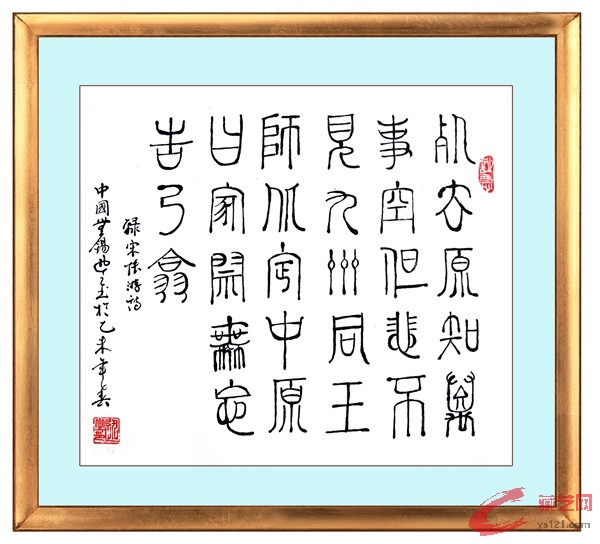 死去原知萬
事空但悲不
見九州同王
師北定中原
日家祭無忘
告乃翁
錄宋陸游詩
中國無錫於乙未年春
藏艺网
ys121.com